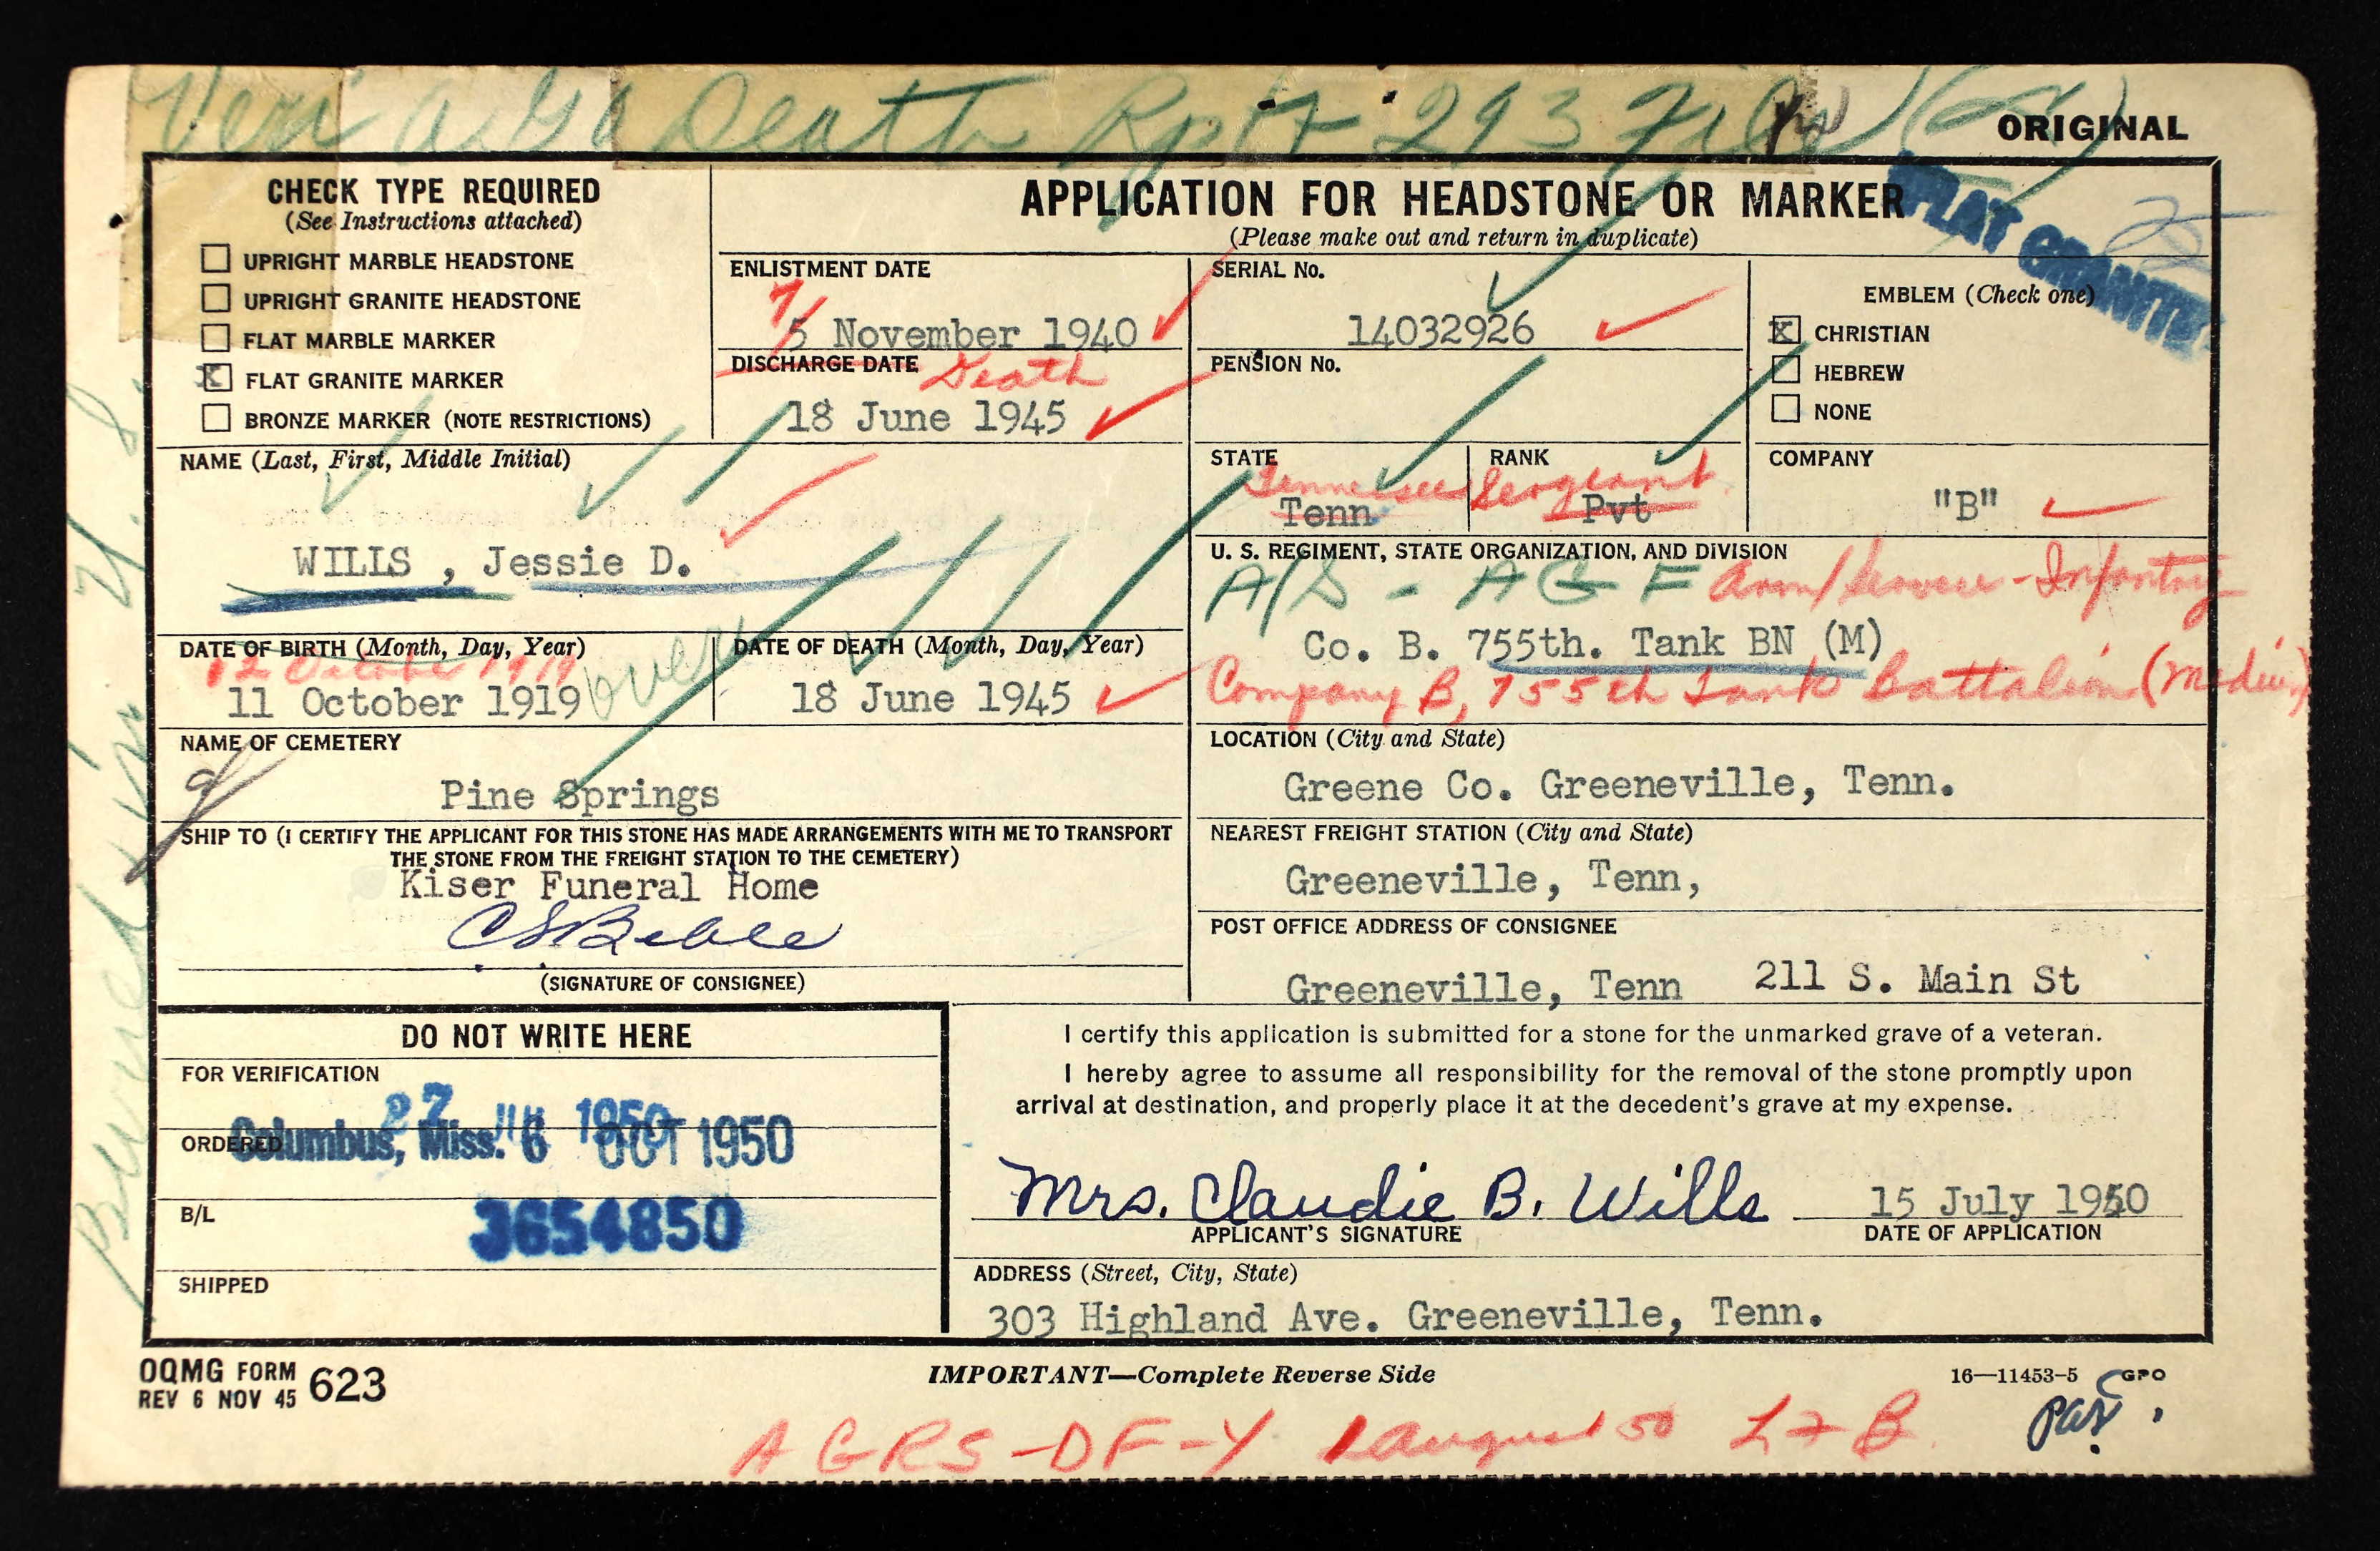 Death Rpt 293 File
ORIGINAL
CHECK TYPE REQUIRED
(See Instructions attached)
UPRIGHT MARBLE HEADSTONE
UPRIGHT GRANITE HEADSTONE
FLAT MARBLE MARKER
X FLAT GRANITE MARKER
BRONZE MARKER (NOTE RESTRICTIONS)
APPLICATION FOR HEADSTONE OR MARKER
(Please make out and return in duplicate)
FLAT GRANITE
ENLISTMENT DATE
7/
5 November 1940
DISCHARGE DATE Death
18 June 1945
SERIAL No.
14032926
PENSION No.
EMBLEM (Check one)
X CHRISTIAN
HEBREW
NONE
NAME (Last, First, Middle Initial)
WILLS , Jessie D.
STATE
Tennessee
Tenn
RANK
Sergeant
Pvt
COMPANY
"B"
U. S. REGIMENT, STATE ORGANIZATION, AND DIVISION
A/S - AGF Arm/Service-Infantry
Co. B. 755th. Tank BN (M)
Company B, 755th Tank Battalion (Medium)
DATE OF BIRTH (Month, Day, Year)
12 October 1919
11 October 1919 over
DATE OF DEATH (Month, Day, Year)
18 June 1945
NAME OF CEMETERY
Pine Springs
LOCATION (City and State)
Greene Co. Greeneville, Tenn.
SHIP TO (I CERTIFY THE APPLICANT FOR THIS STONE HAS MADE ARRANGEMENTS WITH ME TO TRANSPORT
THE STONE FROM THE FREIGHT STATION TO THE CEMETERY)
Kiser Funeral Home
(SIGNATURE OF CONSIGNEE)
NEAREST FREIGHT STATION (City and State)
Greeneville, Tenn,
POST OFFICE ADDRESS OF CONSIGNEE
Greeneville, Tenn 211 S. Main St
DO NOT WRITE HERE
FOR VERIFICATION
27 1950
ORDERED Columbus, Miss. 6 OCT 1950
B/L
3654850
SHIPPED
I certify this application is submitted for a stone for the unmarked grave of a veteran.
I hereby agree to assume all responsibility for the removal of the stone promptly upon
arrival at destination, and properly place it at the decedent's grave at my expense.
Mrs. Claudie B. Wills 15 July 1950
APPLICANT'S SIGNATURE DATE OF APPLICATION
ADDRESS (Street, City, State)
303 Highland Ave. Greeneville, Tenn.
OQMG FORM 623
REV 6 NOV 45
IMPORTANT—Complete Reverse Side
16—11453-5 GPO
AGRS-DF-Y 1 August 50 L7B
Buried in U.S.